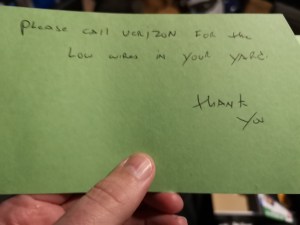 Please call Verizon for the
low wires in your yard
thank
you